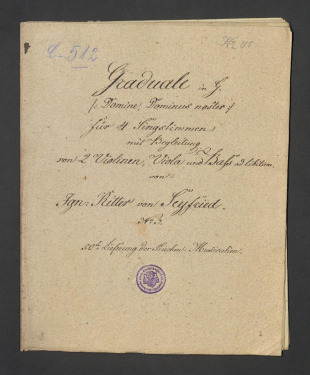 C. 512
Graduale in G.
(: Domine, Dominus noster :)
für 4 Singstimmen
mit Begleitung
von 2 Violinen, Viola und Baß
von
Ign: Ritter von Seyfried.
No 3.
Lieferung der Kirchen-Musikalien.